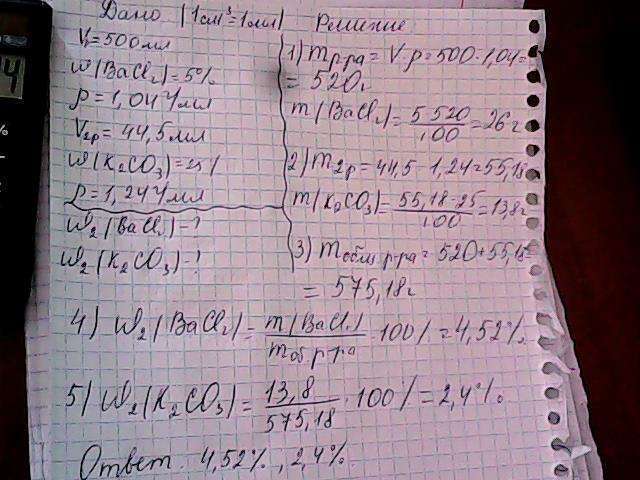 Дано (1см³=1мл)
V₁=500мл
ω(BaCl₂)=5%
ρ=1,04г/мл
V₂р=44,5мл
ω(K₂CO₃)=25%
ρ=1,24г/мл
ω₂(BaCl₂)-?
ω₂(K₂CO₃)-?
Решение
1) mр-ра=V·ρ=500·1,04=
=520г
m(BaCl₂)=5·520/100=26г
2) m₂р=44,5·1,24=55,18г
m(K₂CO₃)=55,18·25/100=13,8г
3) m общ р-ра=520+55,18=
=575,18г
4) ω₂(BaCl₂)=m(BaCl₂)/mоб р-ра·100%=4,52%
5) ω₂(K₂CO₃)=13,8/575,18·100%=2,4%
Ответ. 4,52%, 2,4%.